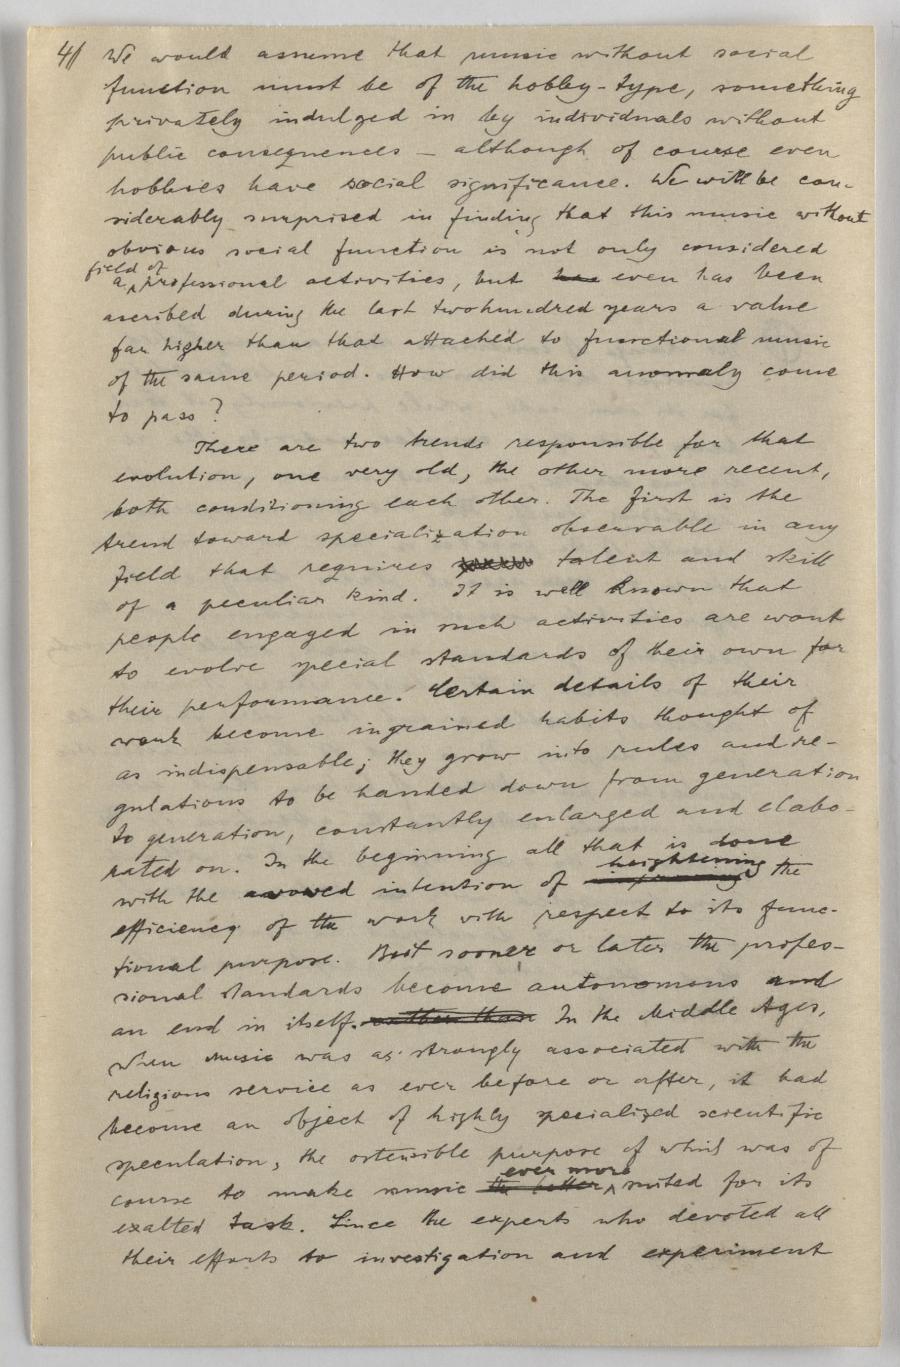 4/ We would assume that music without social
function must be of the hobby-type, something
privately indulged in by individuals without
public consequences — although of course even
hobbies have social significance. We will be con-
siderably surprised in finding that this music without
obvious social function is not only considered
field of
a professional activities, but has even has been
ascribed during the last twohundred years a value
far higher than that attached to functional music
of the same period. How did this anomaly come
to pass?
There are two trends responsible for that
evolution, one very old, the other more recent,
both conditioning each other. The first is the
trend toward specialization observable in any
field that requires talent and skill
of a peculiar kind. It is well known that
people engaged in such activities are wont
to evolve special standards of their own for
their performance. Certain details of their
work become ingrained habits thought of
as indispensable; they grow into rules and re-
gulations to be handed down from generation
to generation, constantly enlarged and elabo-
rated on. In the beginning all that is done
heightening
with the avowed intention of the
efficiency of the work with respect to its func-
tional purpose. But sooner or later the profes-
sional standards become autonomous and
an end in itself. rather than In the Middle Ages,
when music was as strongly associated with the
religious service as ever before or after, it had
become an object of highly specialized scientific
speculation, the ostensible purpose of which was of
ever more
course to make music the better suited for its
exalted task. Since the experts who devoted all
their efforts to investigation and experiment